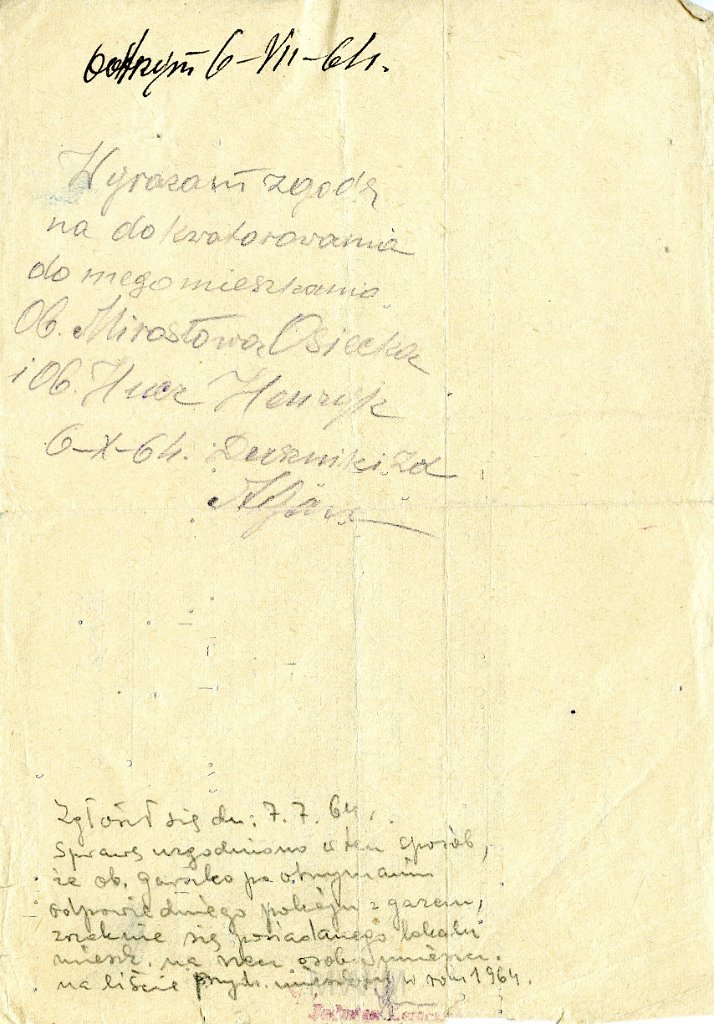 6-VII-64.
Wyrazam zgodę
na dokwaterowania
do mego mieszkania
Ob. Mirosława Osiecka
i Ob. Henryk
6-X-64. Duszniki Zd
Zgłosił się dn: 7.7.64 r.
sprawę uzgodniono w ten sposób,
że ob. po otrzymaniu
odpowiedniego pokoju z gazem,
zrzeknie się posiadanego lokalu
mieszk. na rzecz osoby umieszcz.
na liście przydz. mieszkań w rom 1964.